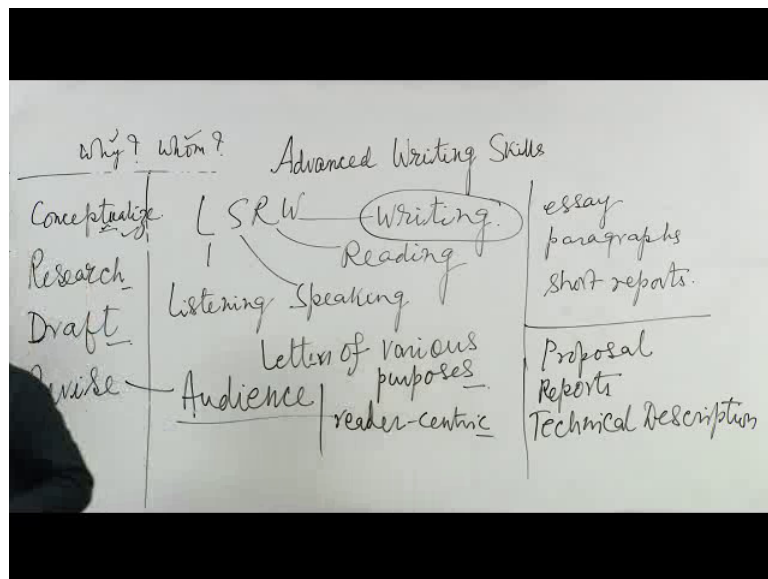 Why? Whom?
Advanced Writing Skills
Conceptualize
Research
Draft
L S R W
Writing
Reading
Listening Speaking
Letters of various
purposes
Audience
reader-centric
essay
paragraphs
short reports.
Proposal
Reports
Technical Description